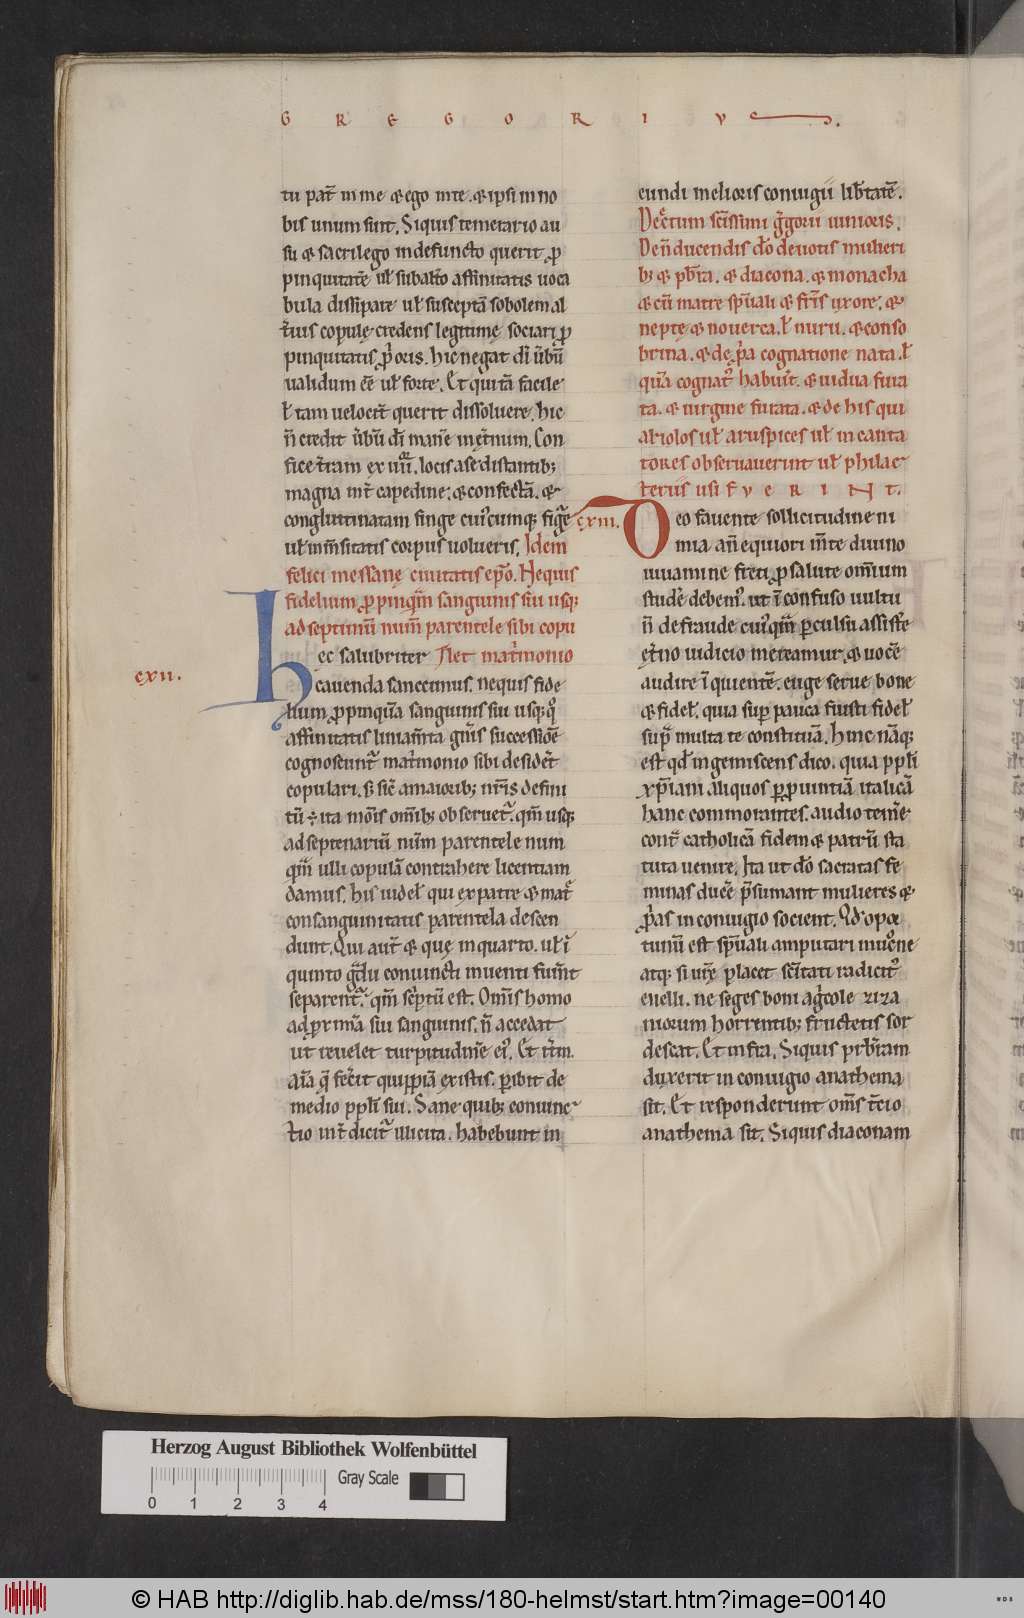 G R E G O R I V S.
tu pat̄ in me & ego inte. & ipsi in no
bis unum sunt. Siquis temerario au
su & sacrilego indefuncto querit ꝓ
pinquitatē ul̄ subalt̄o affinitatis uoca
bula dissipare ul̄ susceptā sobolem al
t̄ius copule credens legitimę sociari ꝓ
pinquitatis p̄ocis. hic negat dī ūbū
ualidum eē ul̄ forte. Et qui tā facile
ł tam uelocit̄ querit dissoluere. hic
n̄ credit ūbū dī manē inęt̄num. Con
fice t̄iam ex uū. locis ase distantib;
magna int̄ capedine. & confectā. &
conglutinatam finge cuīcumq; figr̄ę
ul̄ inm̄sitatis corpus uolueris. Idem
felici messanę ciuitatis ep̄o. Nequis
fidelium ꝓpinqm̄ sanguinis sui usq;
ad septimū num̄ parentele sibi copu
cxii.
Hec salubriter let mat̄monio
cauenda sanccimus. nequis fide
lium ꝓpinquā sanguinis sui usq; q°
affinitatis liniam̄ta gn̄is successiōe
cognoscunt̄ mat̄monio sibi desidēt
copulari. ß sic̄ amaiorib; nr̄is defini
tū ÷ ita mōis om̄ib; obseruet̄. qm̄ usq;
ad septenariū num̄ parentele num
qm̄ ulli copulā contrahere licentiam
damus. his uidel̄ qui ex patre & mat̄
consanguinitatis parentela descen
dunt. Qui aut̄ & quę in quarto. ul̄ ī
quinto gradu coniuncti inuenti fuīnt
separent̄. qm̄ sc̄ptū est. Om̄is homo
ad ꝓximā sui sanguinis. n̄ accedat
ut reuelet turpitudinē ei᾿. Et it̄m.
Aīa q̄ fec̄it quippiā ex istis. ꝑibit de
medio ppl̄i sui. Sane quib; coniunc
t̄io int̄dicit̄ illicita. habebunt in
eundi melioris coniugii lib̄tatē.
Dec̄tum sc̄issimi ḡgorii iunioris.
De n̄ ducendis dō deuotis mulieri
b; & pb̄ra. & diacona. & monacha
& cū matre sp̄uali & fr̄is uxore. &
neptę & nouerca. ł nuru. & conso
brina. & de p̄a cognatione nata. ł
quā cognat᾿ habuīt. & uidua fura
ta. & uirgine furata. & de his qui
ariolos ul̄ aruspices ul̄ incanta
tores obseruauerint ul̄ philac
teriis usi F V E R I N T.
cxiii.
Deo fauente sollicitudine ni
mia an̄ equiori m̄te diuino
iuuamine freti ꝓ salute om̄ium
studēˀ debem᾿. ut ī confuso uultu
n̄ de fraude cuīqm̄ ꝑculsu assist̄e
ęt̄no iudicio mereamur. & uocē
audire ī quientē. euge serue bone
& fidel̄. quia suꝑ pauca fuisti fidel̄
supra multa te constituā. hinc nāq;
est qd̄ ingemiscens dico. quia ppl̄i
xp̄iani aliquos ꝑꝓuintiā italicā
hanc commorantes. audio temē
cont̄ catholicā fidem & patrū sta
tuta uenire. Ita ut dō sacratas fe
minas ducē p̄sumant mulieres &
p̄as in coniugio socient. Qđ opor
tunū est sp̄uali amputari mucrone
atq; si uīę placet sc̄itati radicit᾿
euelli. ne seges boni ag̃cole ziza
niorum horrentib; fructetis sor
descat. Et infra. Siquis prb̄ram
duxerit in coniugio anathema
sit. Et responderunt om̄s t̄cio
anathema sit. Siquis diaconam
Herzog August Bibliothek Wolfenbüttel
Gray Scale
0 1 2 3 4
© HAB http://diglib.hab.de/mss/180-helmst/start.htm?image=00140